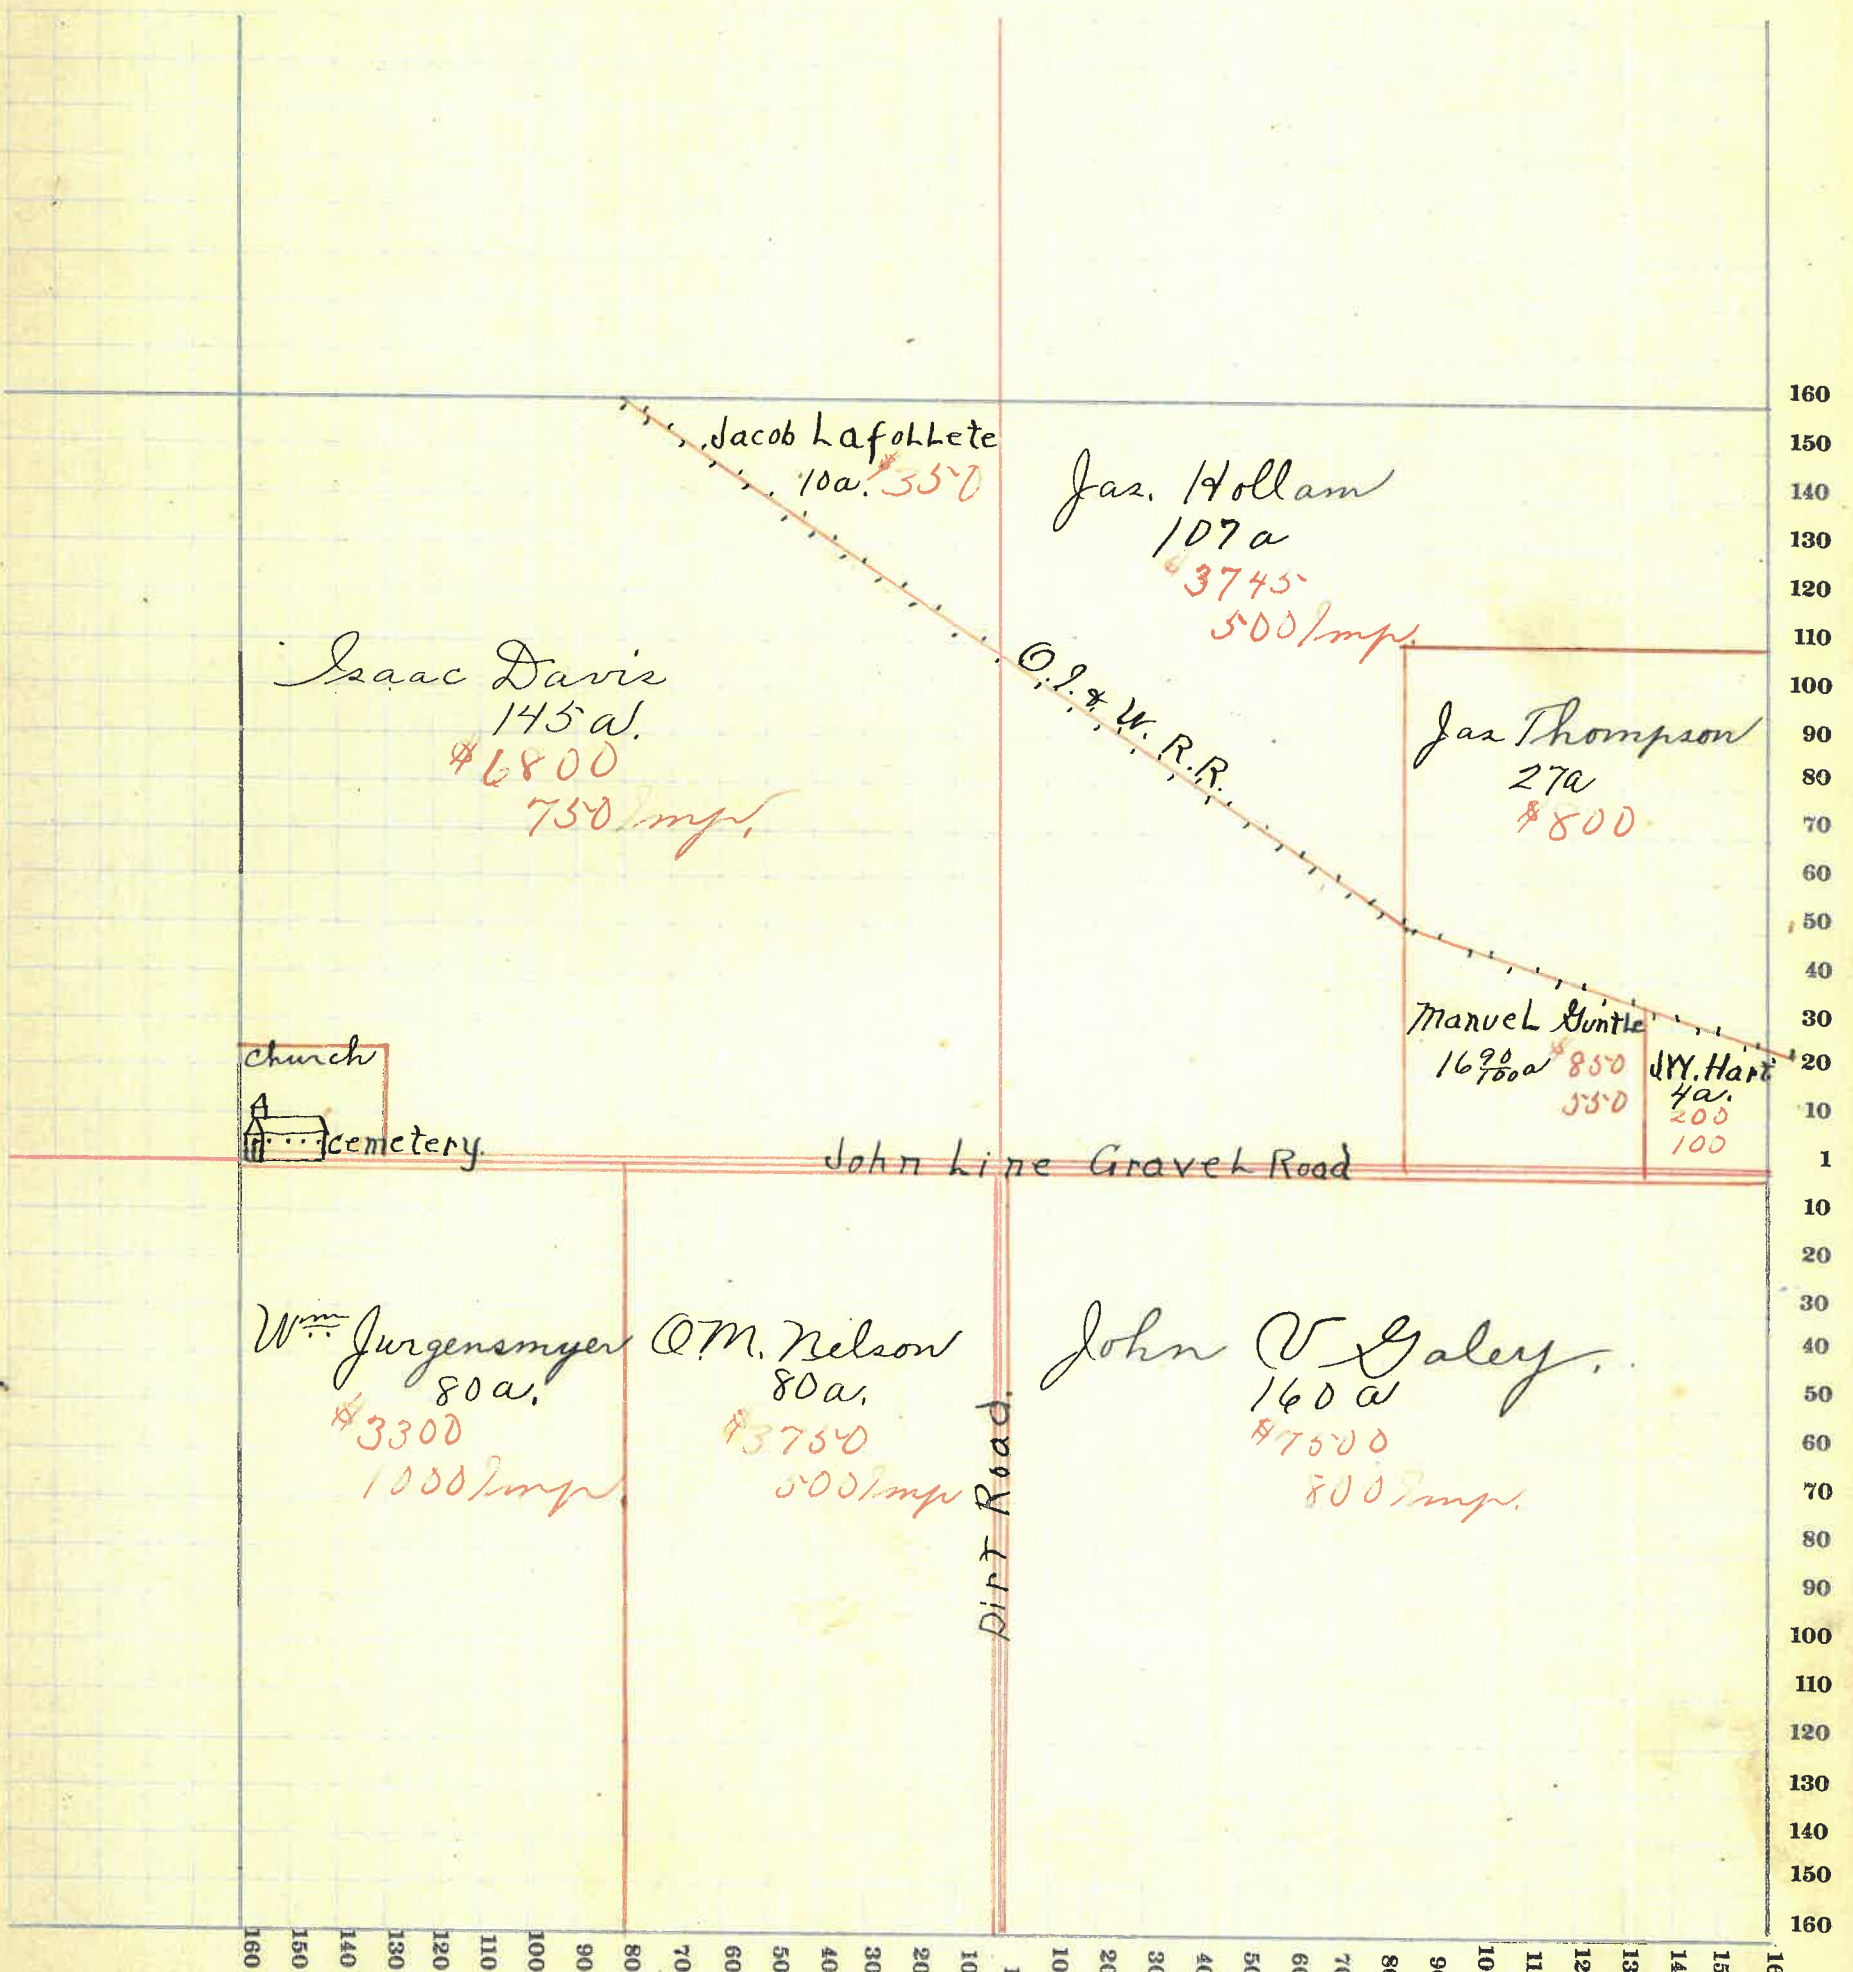 Jacob Lafollete
10a. $350
Jas. Hollam
107a
3745
500 Imp.
Isaac Davis
145 a.
$6800
750 Imp.
O. I. & W. R.R.
Jas Thompson
27a
$800
Manuel Guntle
16 90/100 a $850
550
J.W. Hart
4a.
200
100
church
cemetery.
John Line Gravel Road
Wm Jurgensmyer
80a.
$3300
1000 Imp
O.M. Nelson
80a.
$3750
500 Imp
Dirt Road.
John V Galey.
160 a
$7500
800 Imp.
160
150
140
130
120
110
100
90
80
70
60
50
40
30
20
10
1
10
20
30
40
50
60
70
80
90
100
110
120
130
140
150
160
160 150 140 130 120 110 100 90 80 70 60 50 40 30 20 10 1 10 20 30 40 50 60 70 80 90 10 11 12 13 14 15 16